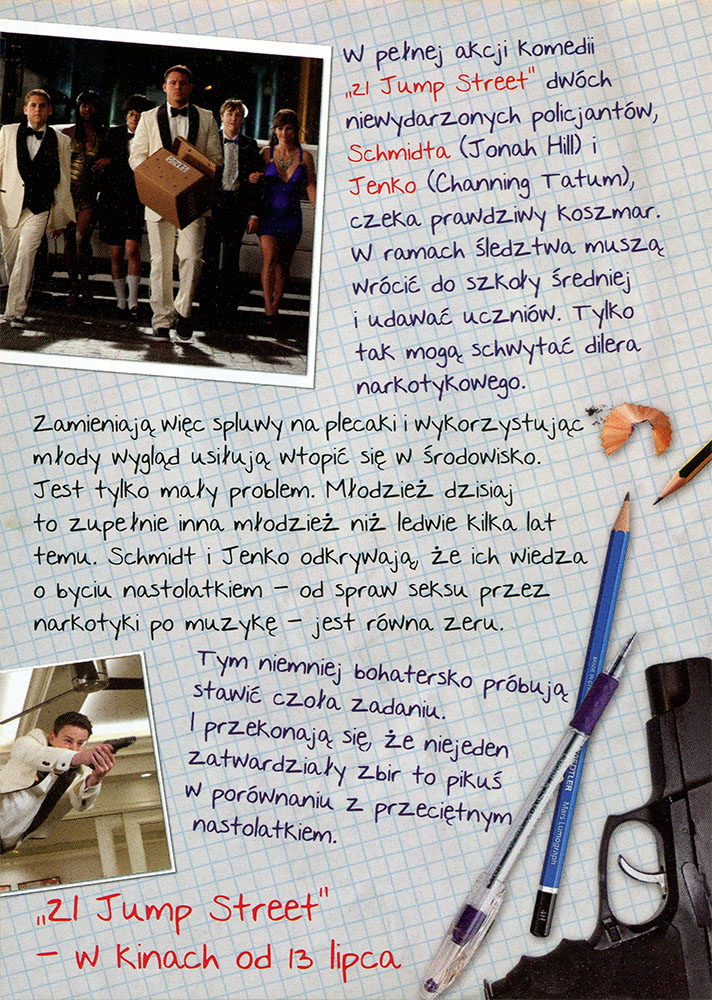 W pełnej akcji komedii
„21 Jump Street" dwóch
niewydarzonych policjantów,
Schmidta (Jonah Hill) i
Jenko (Channing Tatum),
czeka prawdziwy koszmar.
W ramach śledztwa muszą
wrócić do szkoły średniej
i udawać uczniów. Tylko
tak mogą schwytać dilera
narkotykowego.
Zamieniają więc spluwy na plecaki i wykorzystując
młody wygląd usiłują wtopić się w środowisko.
Jest tylko mały problem. Młodzież dzisiaj
to zupełnie inna młodzież niż ledwie kilka lat
temu. Schmidt i Jenko odkrywają, że ich wiedza
o byciu nastolatkiem – od spraw seksu przez
narkotyki po muzykę – jest równa zeru.
Tym niemniej bohatersko próbują
stawić czoła zadaniu.
I przekonają się, że niejeden
zatwardziały zbir to pikuś
w porównaniu z przeciętnym
nastolatkiem.
„21 Jump Street"
– w kinach od 13 lipca
Mars Lumograph
4H